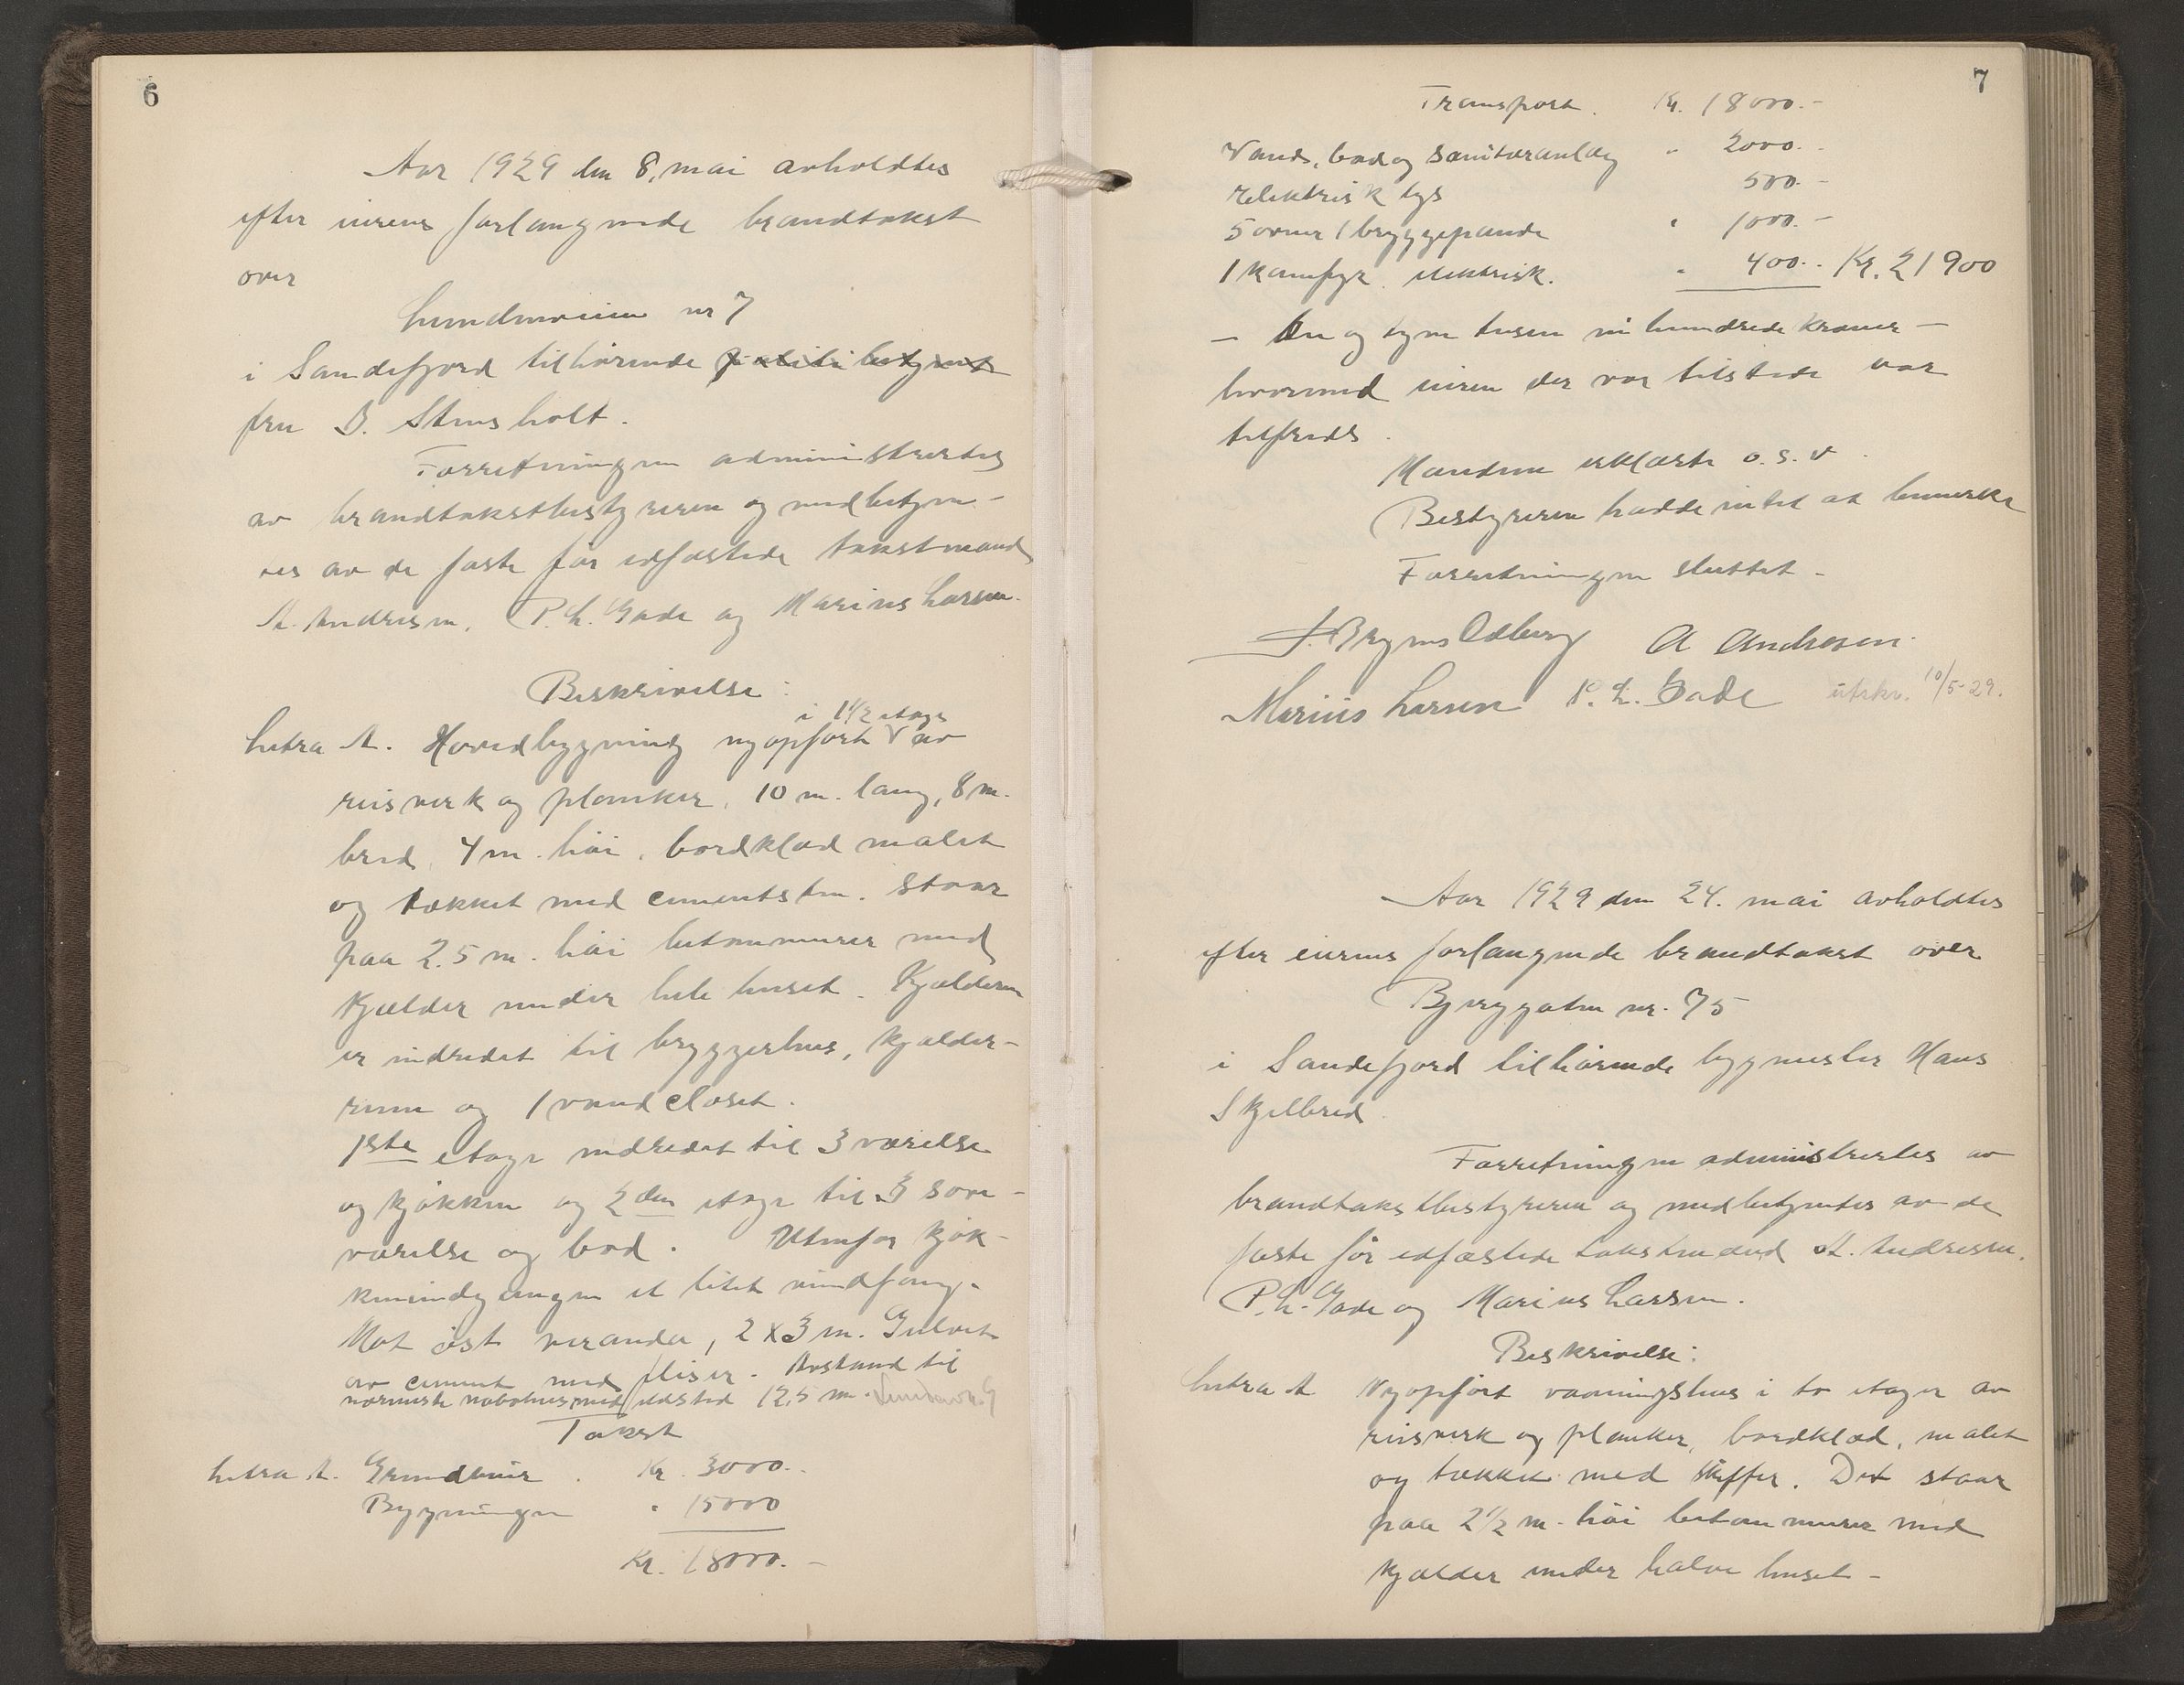 6
Aar 1929 den 8. mai avholdtes
efter eierens forlangende brandtakst
over
Lundeveien nr 7
i Sandefjord tilhørende politibetjent
fru B. Stensholt.
Forretningen administrertes
av brandtakstbestyreren og medbetjen-
tes av de faste før edfæstede takstmænd
A. Andresen, P. L. Gade og Marius Larsen.
Beskrivelse:
i 1 1/2 etage
Litra A. Hovedbygning nyopført V av
reisverk og planker, 10 m. lang, 8 m.
bred, 4 m. høi, bordklæd malet
og tækket med cementsten. Staar
paa 2.5 m. høi betonmurer med
kjælder under hele huset. Kjælderen
er indredet til bryggerhus, kjælder-
rum og 1 vandcloset.
1ste etage indredet til 3 værelse
og kjøkken og 2den etage til 3 sove-
værelse og bad. Utenfor kjøk-
kenindgangen et litet vindfang.
Mot øst veranda, 2 x 3 m. Gulvet
av cement med fliser. Avstand til
nærmeste nabohus med ildsted 12,5 m.
Takst
Litra A. Grundmur . Kr. 3000.-
Bygningen " 15000
Kr. 18000.-
7
Transport. Kr. 18000.-
Vand, bad og sanitæranlæg " 2000.-
Elektrisk lys 500.-
5 ovner 1 bryggepande " 1000.-
1 komfyr elektrisk. " 400.- Kr. 21900
- En og tyve tusen ni hundrede kroner -
hvormed eieren der var tilstede var
tilfreds.
Mændene erklærte o.s.v.
Bestyreren hadde intet at bemerke
Forretningen sluttet.-
J. Bryns Edberg A Andresen.
Marius Larsen P. L. Gade utskr. 10/5-29.
Aar 1929 den 24. mai avholdtes
efter eierens forlangende brandtakst over
Bjerggaten nr. 75
i Sandefjord tilhørende bygmester Hans
Skjelbred.
Forretningen administrertes av
brandtakstbestyreren og medbetjentes av de
faste før edfæstede takstmænd A. Andresen,
P. L. Gade og Marius Larsen.
Beskrivelse:
Litra A Nyopført vaaningshus i to etager av
reisverk og planker, bordklæd, malet
og tækket med skiffer. Det staar
paa 2 1/2 m. høi beton murer med
kjælder under halve huset -